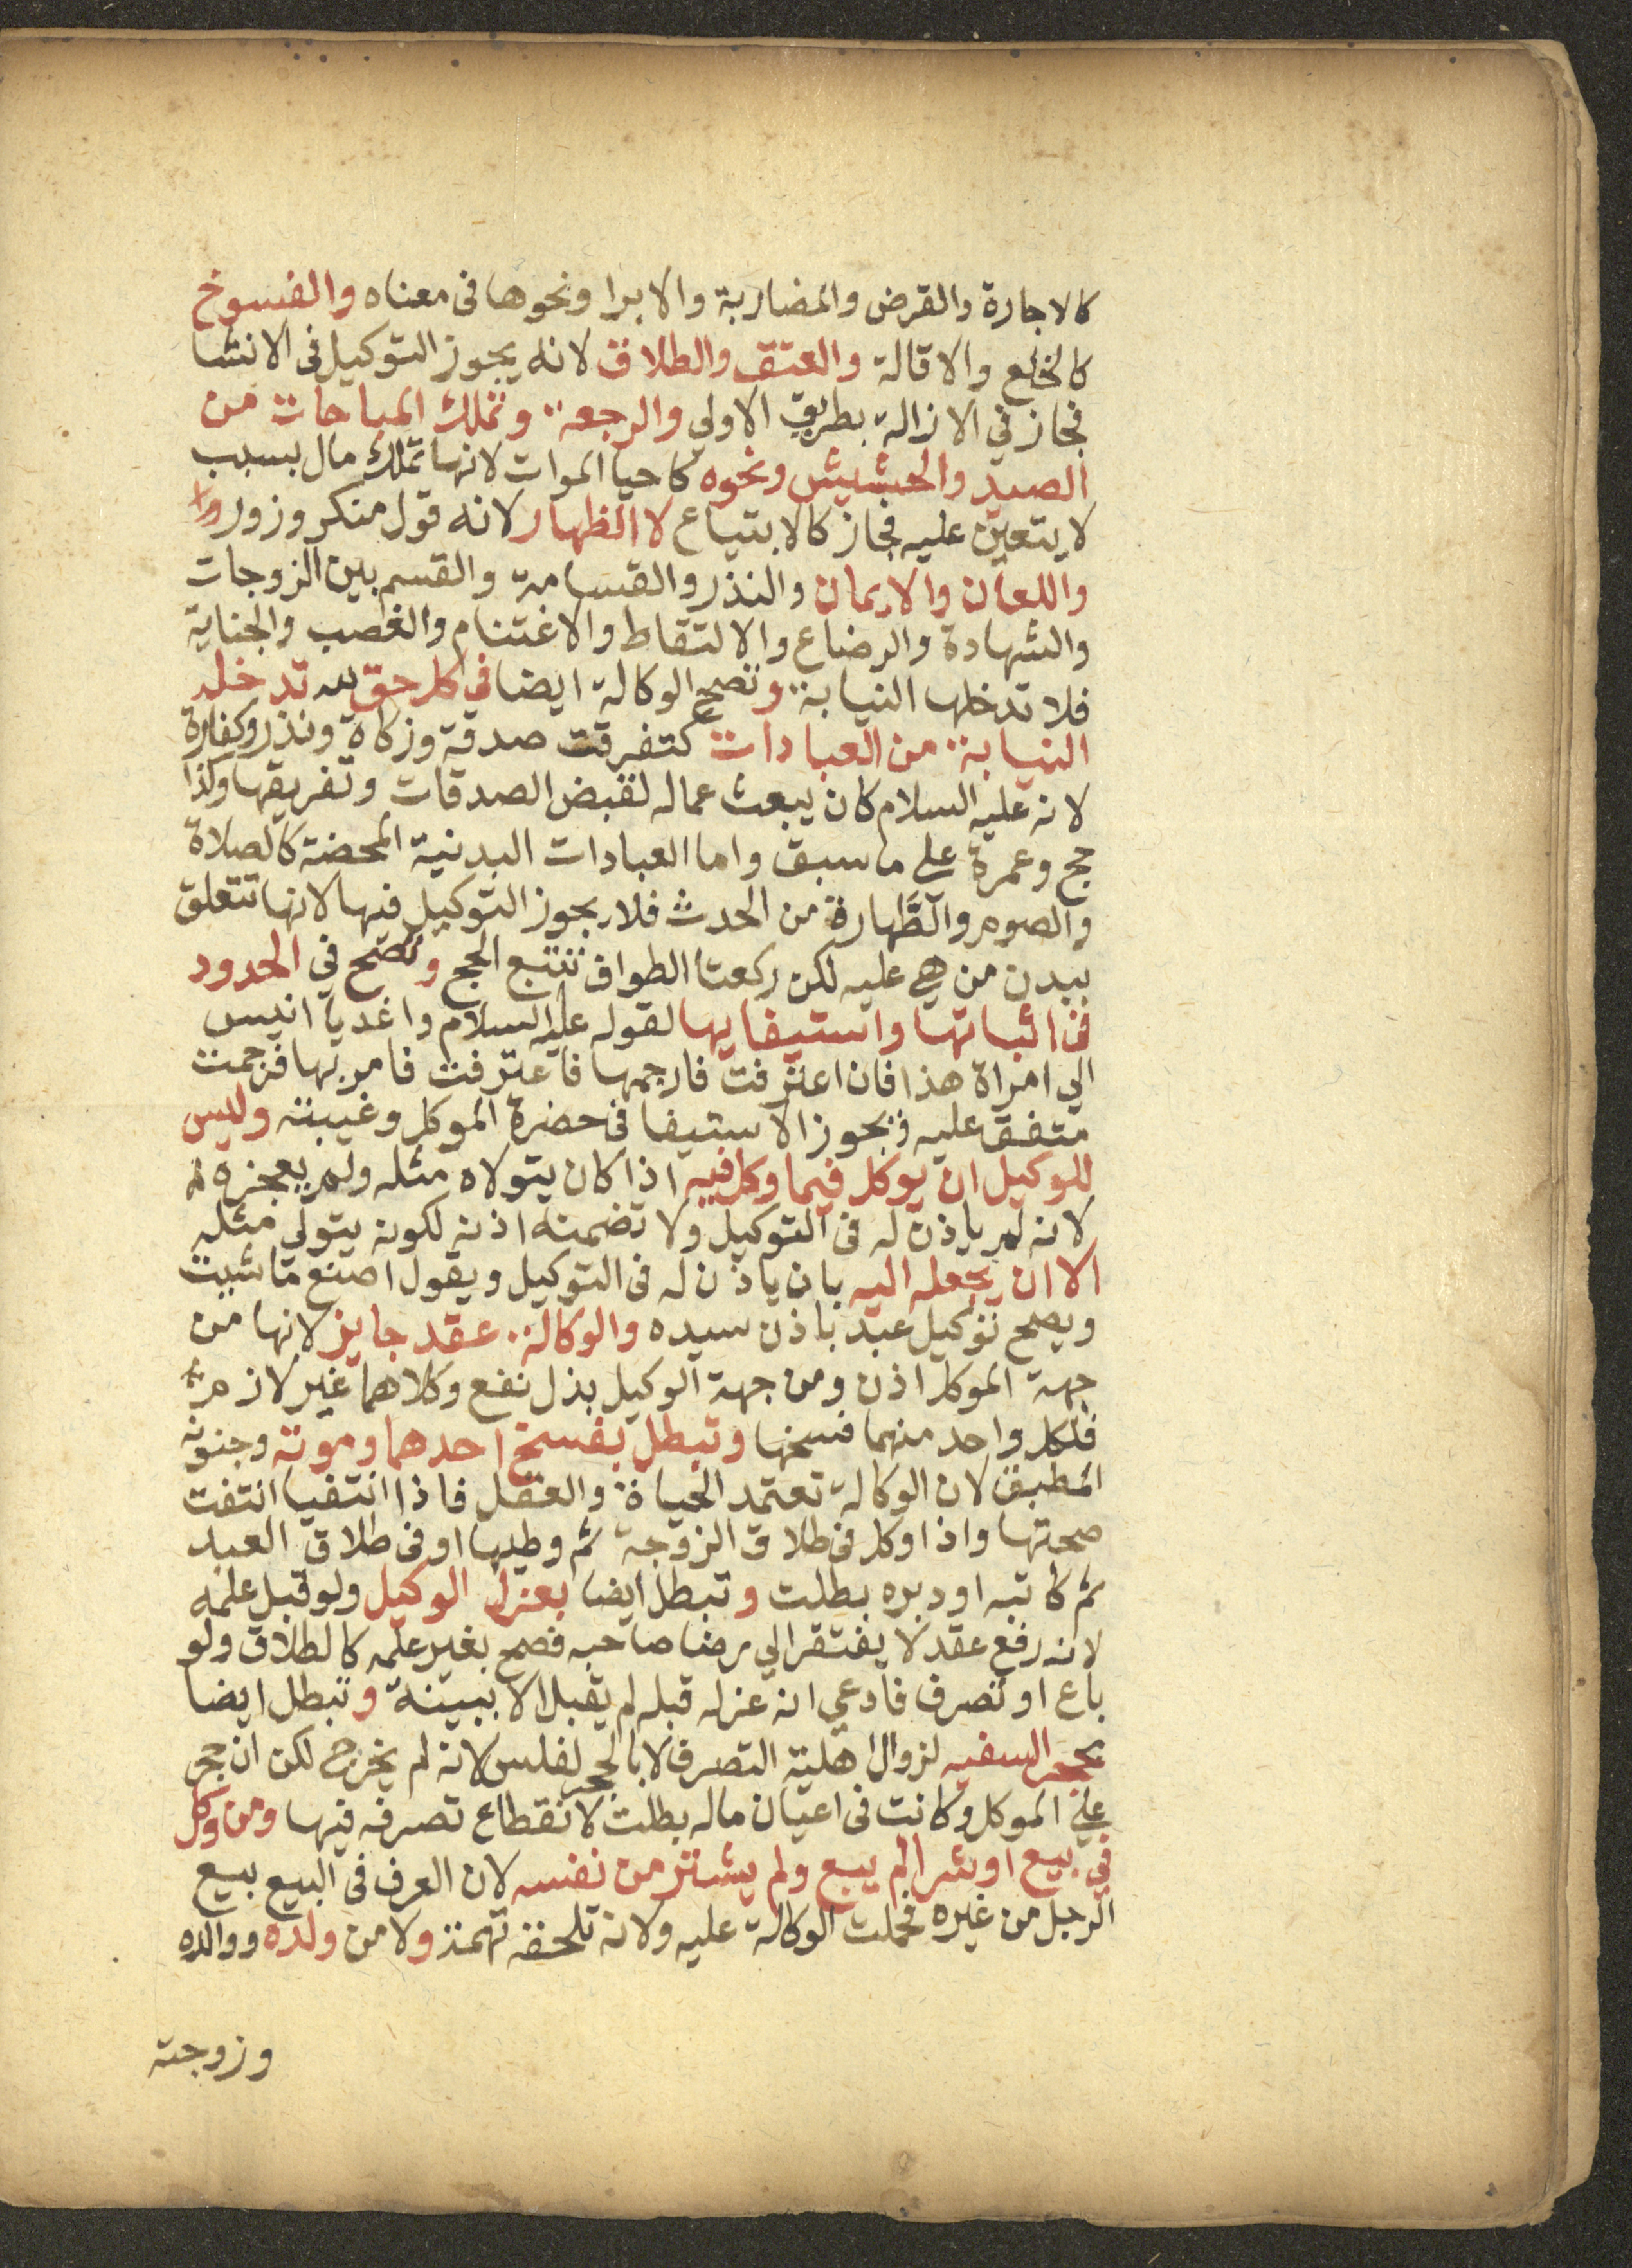 كالاجارة والقرض والمضاربة والابرا ونحوها فى معناه والفسوخ
كالخلع والاقالة والعتق والطلاق لانه يجوز التوكيل فى الانشا
فجاز في الازالة بطريق الاولي والرجعة وتملك المباحات من
الصيد والحشيش ونحوه كاحيا الموات لانها تملك مال بسبب
لا يتعين عليه فجاز كالابتياع لا الظهار لانه قول منكر وزور
واللعان والايمان والنذر والقسامة والقسم بين الزوجات
والشهادة والرضاع والالتقاط والاغتنام والغصب والجناية
فلا تدخلها النيابة وتصح الوكالة ايضا في كل حق لله تدخله
النيابة من العبادات كتفرقت صدقة وزكاة ونذر وكفارة
لانه عليه السلام كان يبعث عماله لقبض الصدقات وتفريقها وكذا
حج وعمرة على ما سبق واما العبادات البدنية المحضة كالصلاة
والصوم والطهارة من الحدث فلا يجوز التوكيل فيها لانها تتعلق
ببدن من هي عليه لكن ركعتا الطواف تتبع الحج وتصح في الحدود
فى اثباتها واستيفايها لقوله عليه السلام واغد يا انيس
الي امراة هذا فان اعترفت فارجمها فاعترفت فامر بها فرجمت
متفق عليه فيجوز الاستيفا فى حضرة الموكل وغيبته وليس
للوكيل ان يوكل فيما وكل فيه اذا كان يتولاه مثله ولم يعجزه
لانه لم ياذن له فى التوكيل ولا تضمنه اذنه لكونه يتولى مثله
الا ان يجعله اليه بان ياذن له فى التوكيل ويقول اصنع ما شيت
ويصح توكيل عبد باذن سيده والوكالة عقد جايز لانها من
جهة الموكل اذن ومن جهة الوكيل بذل نفع وكلاهما غير لازم
فلكل واحد منهما فسخها وتبطل بفسخ احدهما وموته وجنونه
المطبق لان الوكالة تعتمد الحياة والعقل فاذا انتفيا انتفت
صحتها واذا وكل فى طلاق الزوجة ثم وطيها او فى طلاق العبد
ثم كاتبه او دبره بطلت وتبطل ايضا بعزل الوكيل ولو قبل علمه
لانه رفع عقد لا يفتقر الي رضا صاحبه فصح بغير علمه كالطلاق ولو
باع او تصرف فادعي انه عزله قبله لم يقبل الا ببينة وتبطل ايضا
بحجر السفيه لزوال اهلية التصرف لا بالحجر لفلس لانه لم يخرج لكن ان حجر
علي الموكل وكانت فى اعيان ماله بطلت لانقطاع تصرفه فيها ومن وكل
في بيع او شرا لم يبع ولم يشتر من نفسه لان العرف فى البيع بيع
الرجل من غيره فحملت الوكالة عليه ولانه تلحقه تهمة ولا من ولده ووالده
وزوجته